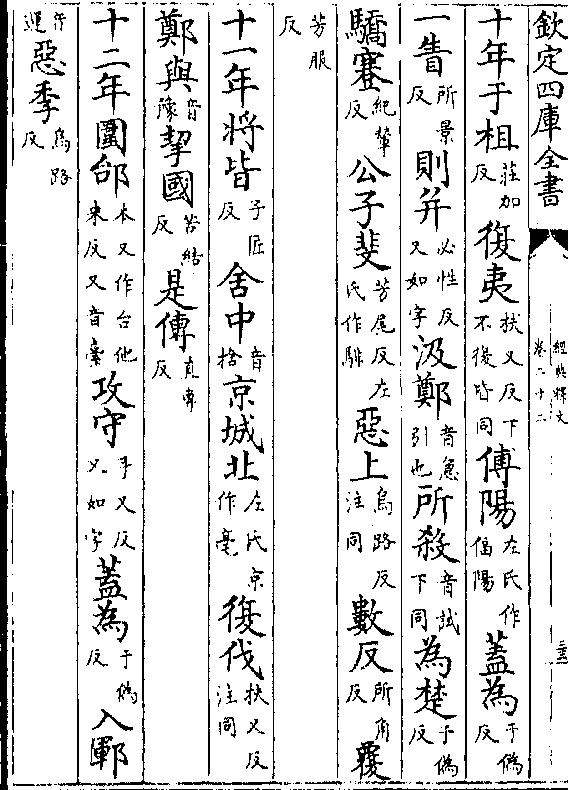 欽定四庫全書
經典釋文
卷二十二
十年于柤莊加反復夷扶又反下不復皆同傅陽左氏作偪陽蓋為于偽反
一眚所景反則并必性反又如字汲鄭音急引也所殺音試下同為楚于偽反
驕蹇紀輦反公子斐芳尾反左氏作騑惡上烏路反注同數反所角反覆
芳服反
十一年將皆子匠反舍中音捨京城北左氏京作亳復伐扶又反注同
鄭與音豫挈國苦結反是傳直專反
十二年圍邰本又作台他來反又音臺攻守手又反又如字蓋為于偽反入鄆
音運惡季烏路反